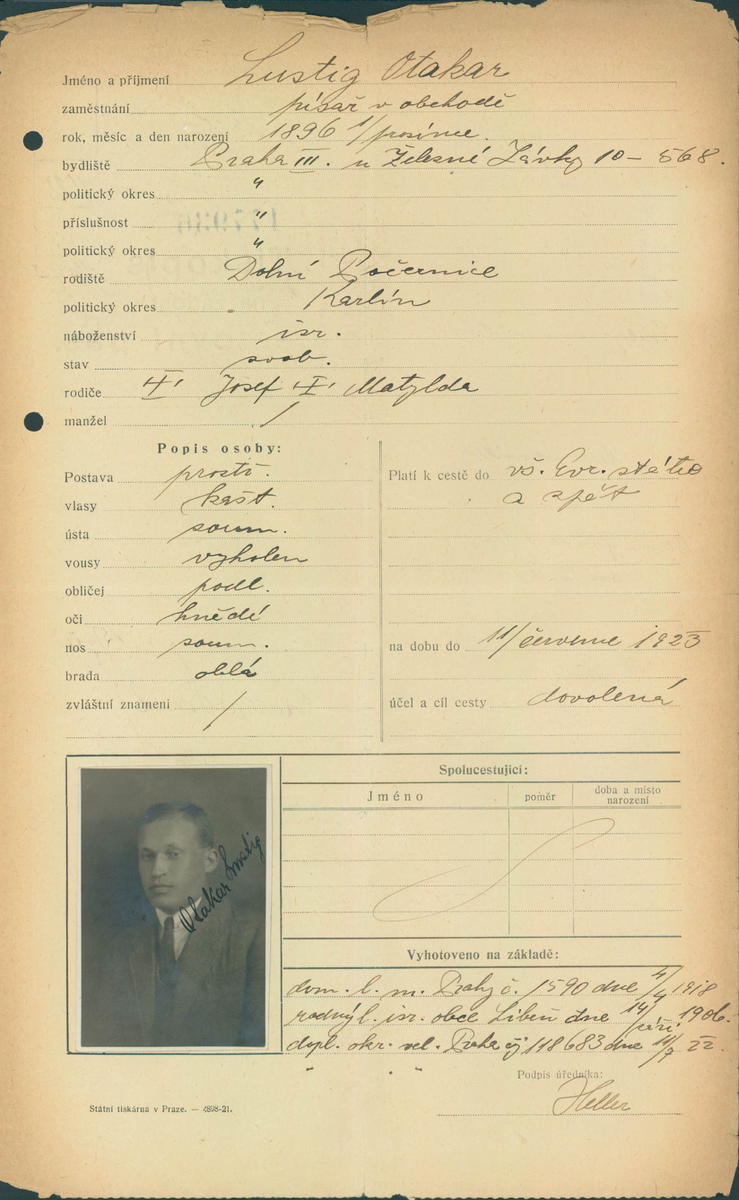 Jméno a příjmení Lustig Otakar
zaměstnání písař v obchodě
rok, měsíc a den narození 1896 1/prosince.
bydliště Praha III. u Železné Lávky 10 – 568.
politický okres "
příslušnost "
politický okres "
rodiště Dolní Počernice
politický okres Karlín
náboženství isr.
stav svob.
rodiče Josef Matylda
manžel /
Popis osoby:
Postava prostř.
vlasy kašt.
ústa soum.
vousy vyholen
obličej podl.
oči hnědé
nos soum.
brada oblá
zvláštní znamení /
Platí k cestě do vš. Evr. států
a zpět
na dobu do 11/července 1923
účel a cíl cesty dovolená
Otakar Lustig
Spolucestující:
Jméno poměr doba a místo narození
Vyhotoveno na základě:
dom. l. m. Prahy č. 1590 dne 4/4 1918
rodný l. isr. obce Libeň dne 14/září 1906.
dopl. okr. vel. Praha čj 118683 dne 11/7 22.
Podpis úředníka:
Heller
Státní tiskárna v Praze. — 4898-21.